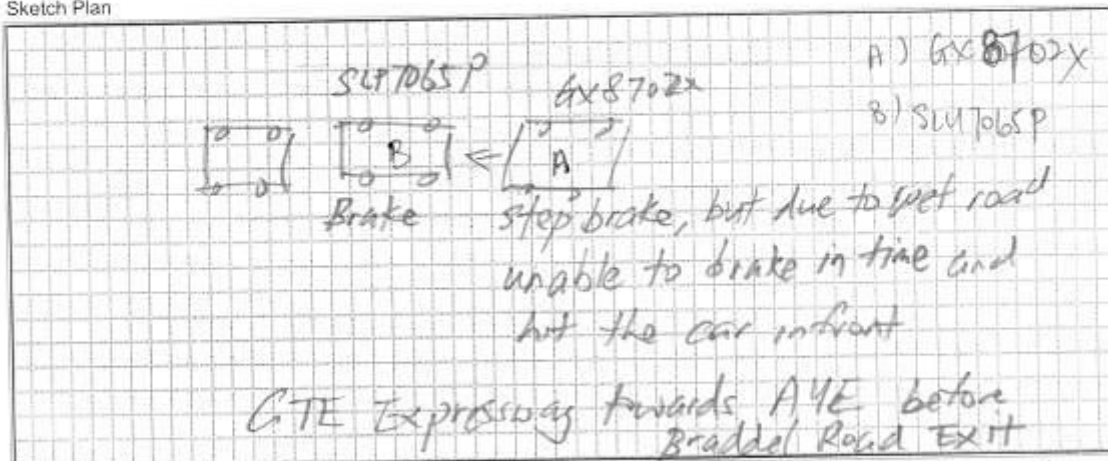 Sketch Plan
A) GX8702X
SLP7065P
GX8702X
B) SLU7065P
B
A
Brake
step brake, but due to wet road
unable to brake in time and
hit the car infront
CTE Expressway towards AYE before
Braddel Road Exit